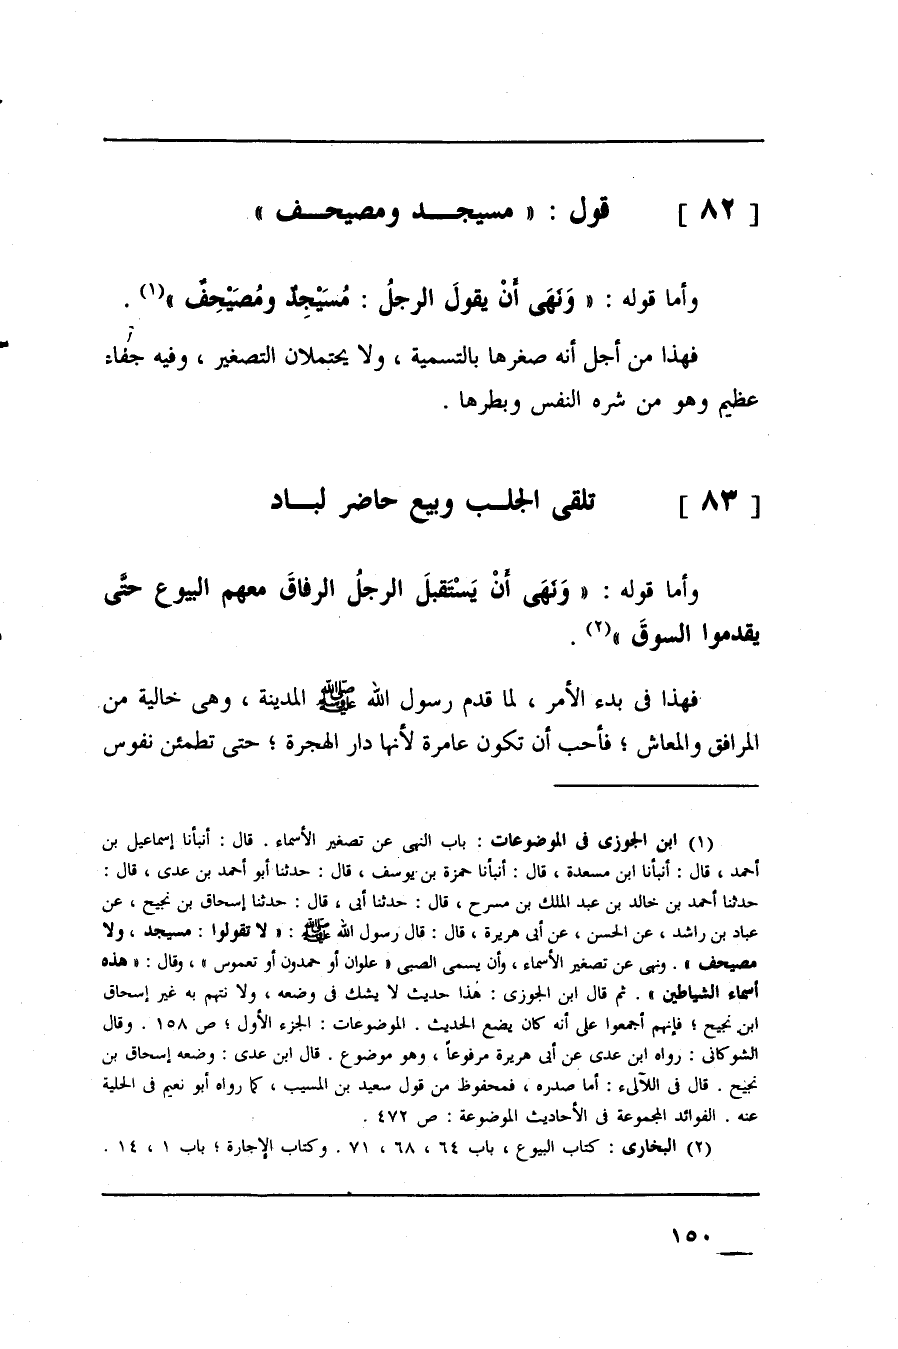 [ ٨٢ ] قول : « مسيجـــد ومصيحــف »
وأما قوله : « وَنَهَى أَنْ يقولَ الرجلُ : مُسَيْجِدٌ ومُصَيْحِفٌ »(١) .
فهذا من أجل أنه صغرها بالتسمية ، ولا يحتملان التصغير ، وفيه جفاء
عظيم وهو من شره النفس وبطرها .
[ ٨٣ ] تلقى الجلــب وبيع حاضر لبــاد
وأما قوله : « وَنَهَى أَنْ يَسْتَقبلَ الرجلُ الرفاقَ معهم البيوع حتَّى
يقدموا السوقَ »(٢) .
فهذا فى بدء الأمر ، لما قدم رسول الله ﷺ المدينة ، وهى خالية من
المرافق والمعاش ؛ فأحب أن تكون عامرة لأنها دار الهجرة ؛ حتى تطمئن نفوس
(١) ابن الجوزى فى الموضوعات : باب النهى عن تصغير الأسماء . قال : أنبأنا إسماعيل بن
أحمد ، قال : أنبأنا ابن مسعدة ، قال : أنبأنا حمزة بن يوسف ، قال : حدثنا أبو أحمد بن عدى ، قال :
حدثنا أحمد بن خالد بن عبد الملك بن مسرح ، قال : حدثنا أبى ، قال : حدثنا إسحاق بن نجيح ، عن
عباد بن راشد ، عن الحسن ، عن أبى هريرة ، قال : قال رسول الله ﷺ : « لا تقولوا : مسيجد ، ولا
مصيحف » . ونهى عن تصغير الأسماء ، وأن يسمى الصبى « علوان أو حمدون أو تعموس » ، وقال : « هذه
أسماء الشياطين » . ثم قال ابن الجوزى : هذا حديث لا يشك فى وضعه ، ولا نتهم به غير إسحاق
ابن نجيح ؛ فإنهم أجمعوا على أنه كان يضع الحديث . الموضوعات : الجزء الأول ؛ ص ١٥٨ . وقال
الشوكانى : رواه ابن عدى عن أبى هريرة مرفوعاً ، وهو موضوع . قال ابن عدى : وضعه إسحاق بن
نجيح . قال فى اللآلىء : أما صدره ، فمحفوظ من قول سعيد بن المسيب ، كما رواه أبو نعيم فى الحلية
عنه . الفوائد المجموعة فى الأحاديث الموضوعة : ص ٤٧٢ .
(٢) البخارى : كتاب البيوع ، باب ٦٤ ، ٦٨ ، ٧١ . وكتاب الإجارة ؛ باب ١ ، ١٤ .
١٥٠